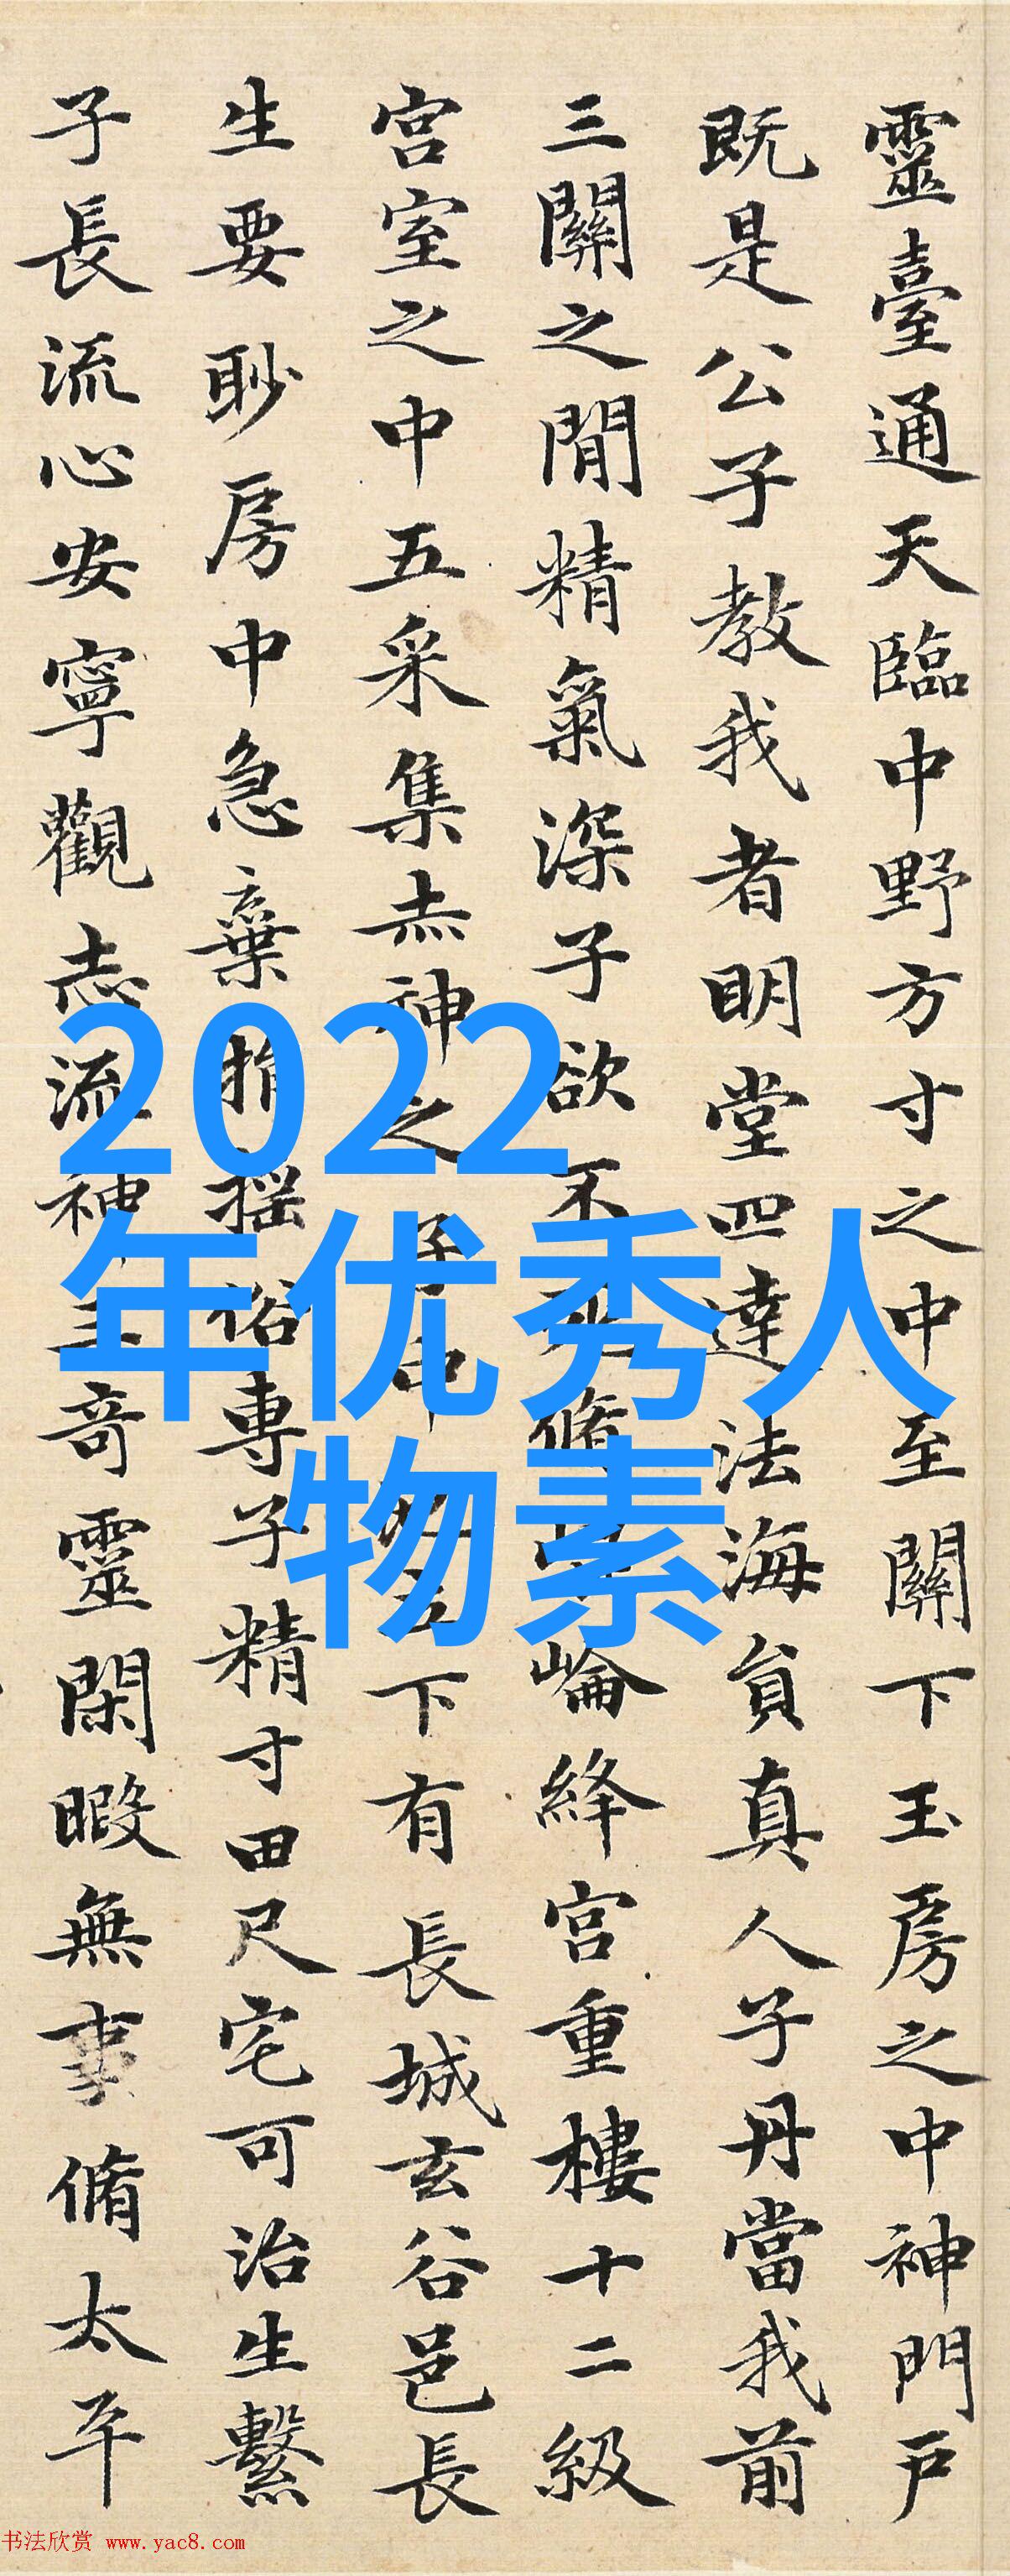 靈臺通天臨中野方寸之中至關下玉房之中神門戶
既是公子教我者明堂四達法海員真人子丹當我前
三關之閒精氣深子欲不脩崘絳宮重樓十二級
宮室之中五采集赤神之子中立下有長城玄谷邑長
生要眇房中急棄捐搖俗專子精寸田尺宅可治生繫
子長流心安寧觀志流神三奇靈閑暇無事脩太平
2022
年优秀人
物素
书法欣赏 www.yac8.com